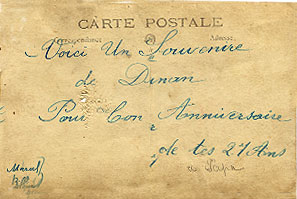 CARTE POSTALE
Correspondance Adresse
Voici Un Souvenire
de Dinan
Pour Ton Anniversaire
de tes 21 Ans
Marcel